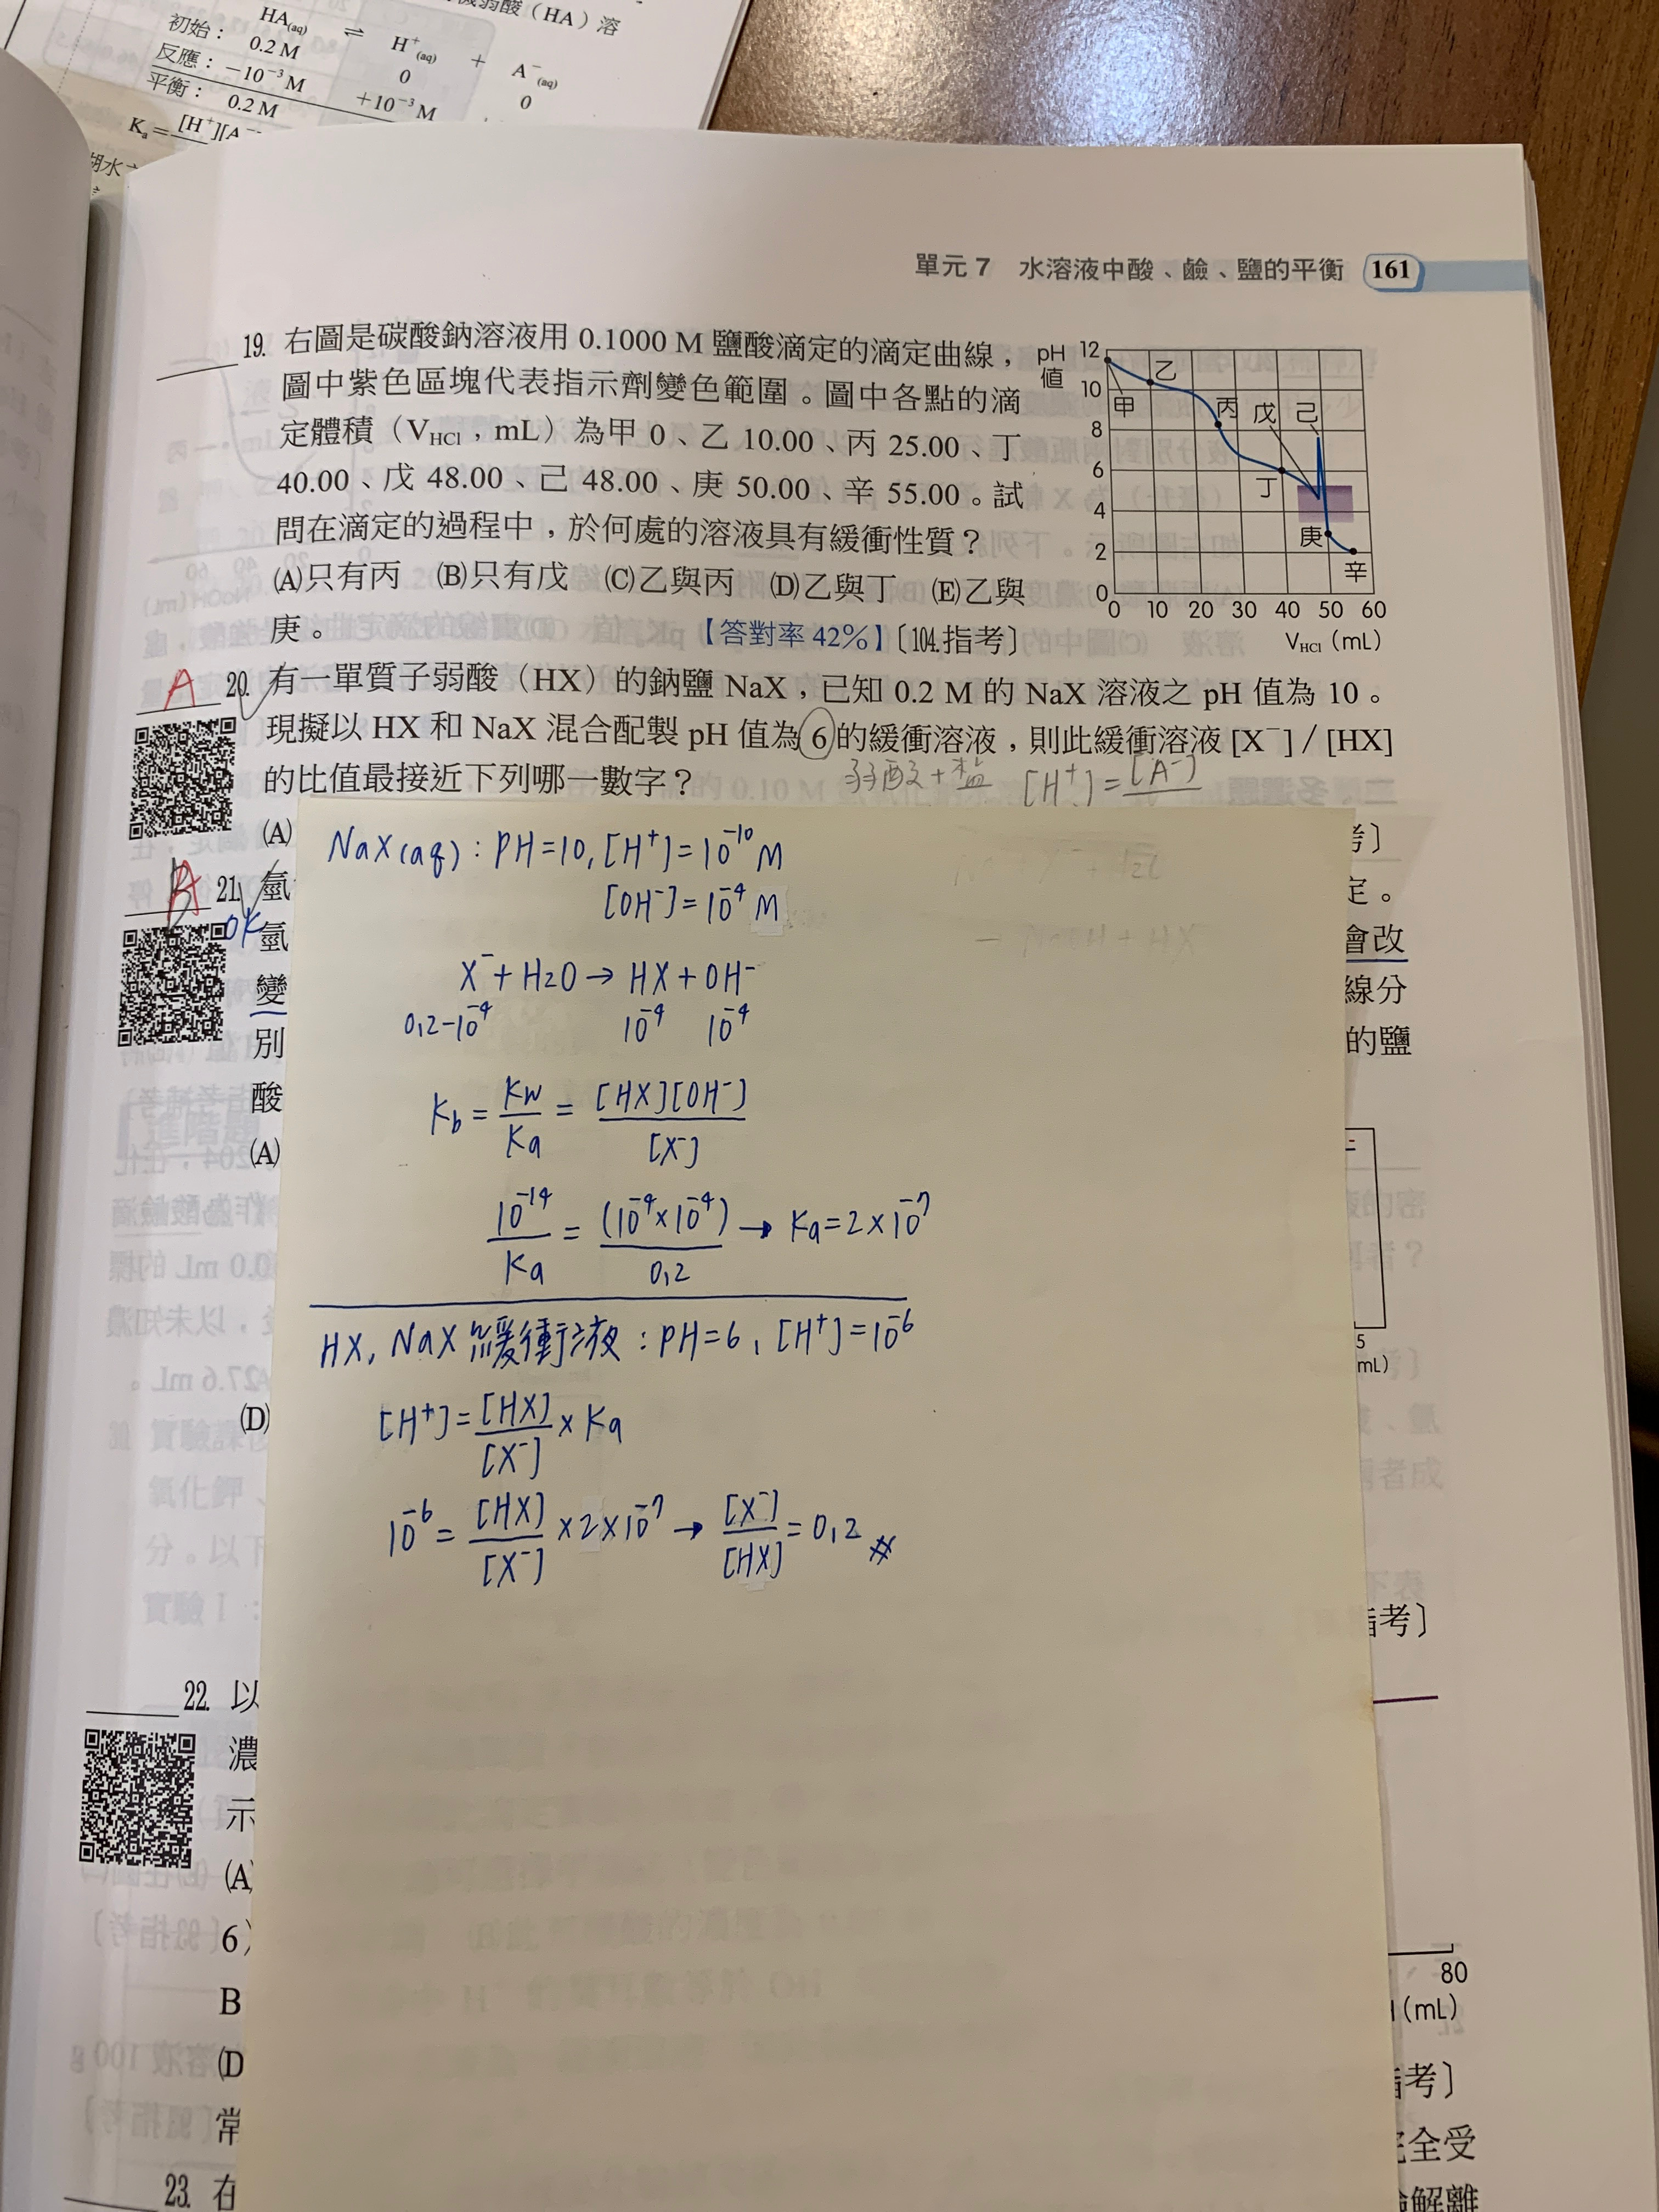 弱酸（HA）溶
HA(aq) ⇌ H⁺(aq) + A⁻(aq)
初始： 0.2 M 0 0
反應：－10⁻³ M ＋10⁻³ M
平衡： 0.2 M
Kₐ＝[H⁺][A⁻
單元 7 水溶液中酸、鹼、鹽的平衡 161
19. 右圖是碳酸鈉溶液用 0.1000 M 鹽酸滴定的滴定曲線，
圖中紫色區塊代表指示劑變色範圍。圖中各點的滴
定體積（V_HCl，mL）為甲 0、乙 10.00、丙 25.00、丁
40.00、戊 48.00、己 48.00、庚 50.00、辛 55.00。試
問在滴定的過程中，於何處的溶液具有緩衝性質？
(A)只有丙 (B)只有戊 (C)乙與丙 (D)乙與丁 (E)乙與
庚。 【答對率 42%】〔104.指考〕
pH值
12
10
8
6
4
2
0
甲
乙
丙
丁
戊
己
庚
辛
0 10 20 30 40 50 60
V_HCl（mL）
A 20. 有一單質子弱酸（HX）的鈉鹽 NaX，已知 0.2 M 的 NaX 溶液之 pH 值為 10。
現擬以 HX 和 NaX 混合配製 pH 值為 6 的緩衝溶液，則此緩衝溶液 [X⁻] / [HX]
的比值最接近下列哪一數字？
弱酸+鹽 [H⁺]=[A⁻]
(A)
NaX(aq) : PH=10, [H⁺]=10⁻¹⁰ M
[OH⁻]=10⁻⁴ M
X⁻+H2O→HX+OH⁻
0.2-10⁻⁴ 10⁻⁴ 10⁻⁴
Kb=Kw/Ka=[HX][OH⁻]/[X⁻]
10⁻¹⁴/Ka=(10⁻⁴×10⁻⁴)/0.2→Ka=2×10⁻⁷
HX, NaX緩衝液 : PH=6, [H⁺]=10⁻⁶
[H⁺]=[HX]/[X⁻]×Ka
10⁻⁶=[HX]/[X⁻]×2×10⁻⁷→[X⁻]/[HX]=0.2 #
考〕
A 21. 氫
OK 氫
變
別
酸
(A)
(D)
定。
會改
線分
的鹽
5
mL)
指考〕
22. 以
濃
示
(A)
6)
B
(D
常
80
(mL)
指考〕
完全受
解離
23. 在